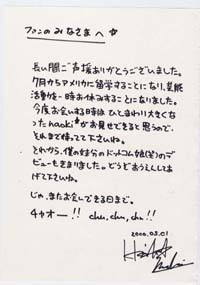 ファンのみなさまへ☆
長い間ご声援ありがとうございました。
7月からアメリカに留学することになり、芸能
活動を一時お休みすることになりました。
今度お会いする時はひとまわり大きくな
った naoki をお見せできると思うので、
それまで待ってて下さいね。
それから、僕の妹分のドットコム娘(笑)のデ
ビューもきまりました。どうぞおうえんしてあ
げて下さいね。
じゃ、またお会いできる日まで。
チャオー!! chu, chu, chu!!
2000.05.01